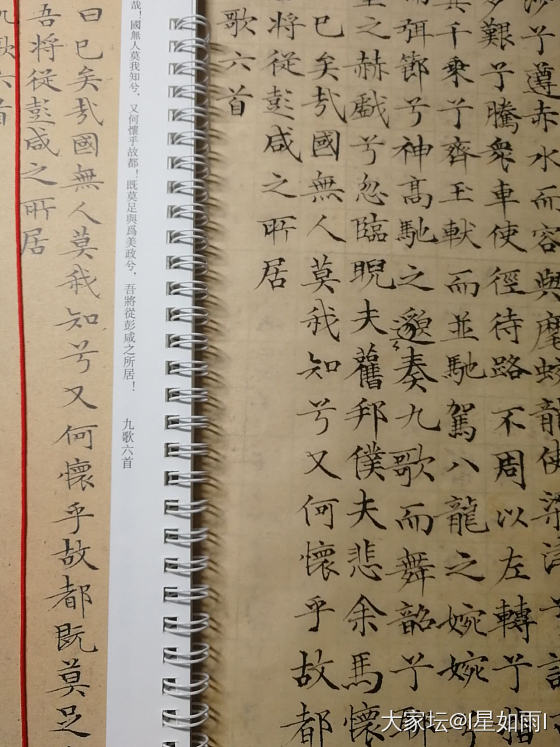 沙兮遵赤水而容與麾蛟龍使梁津兮詔
多艱兮騰衆車使徑待路不周以左轉兮指
其千乗兮齊玉軑而並馳駕八龍之婉婉兮
而弭節兮神高馳之邈邈奏九歌而舞韶兮聊
皇之赫戲兮忽臨睨夫舊邦僕夫悲余馬懷
曰已矣哉國無人莫我知兮又何懷乎故都
吾將從彭咸之所居
九歌六首
哉！國無人莫我知兮，又何懷乎故都！既莫足與爲美政兮，吾將從彭咸之所居！
九歌六首
曰已矣哉國無人莫我知兮又何懷乎故都既莫足
吾將從彭咸之所居
九歌六首
大家坛@I星如雨I